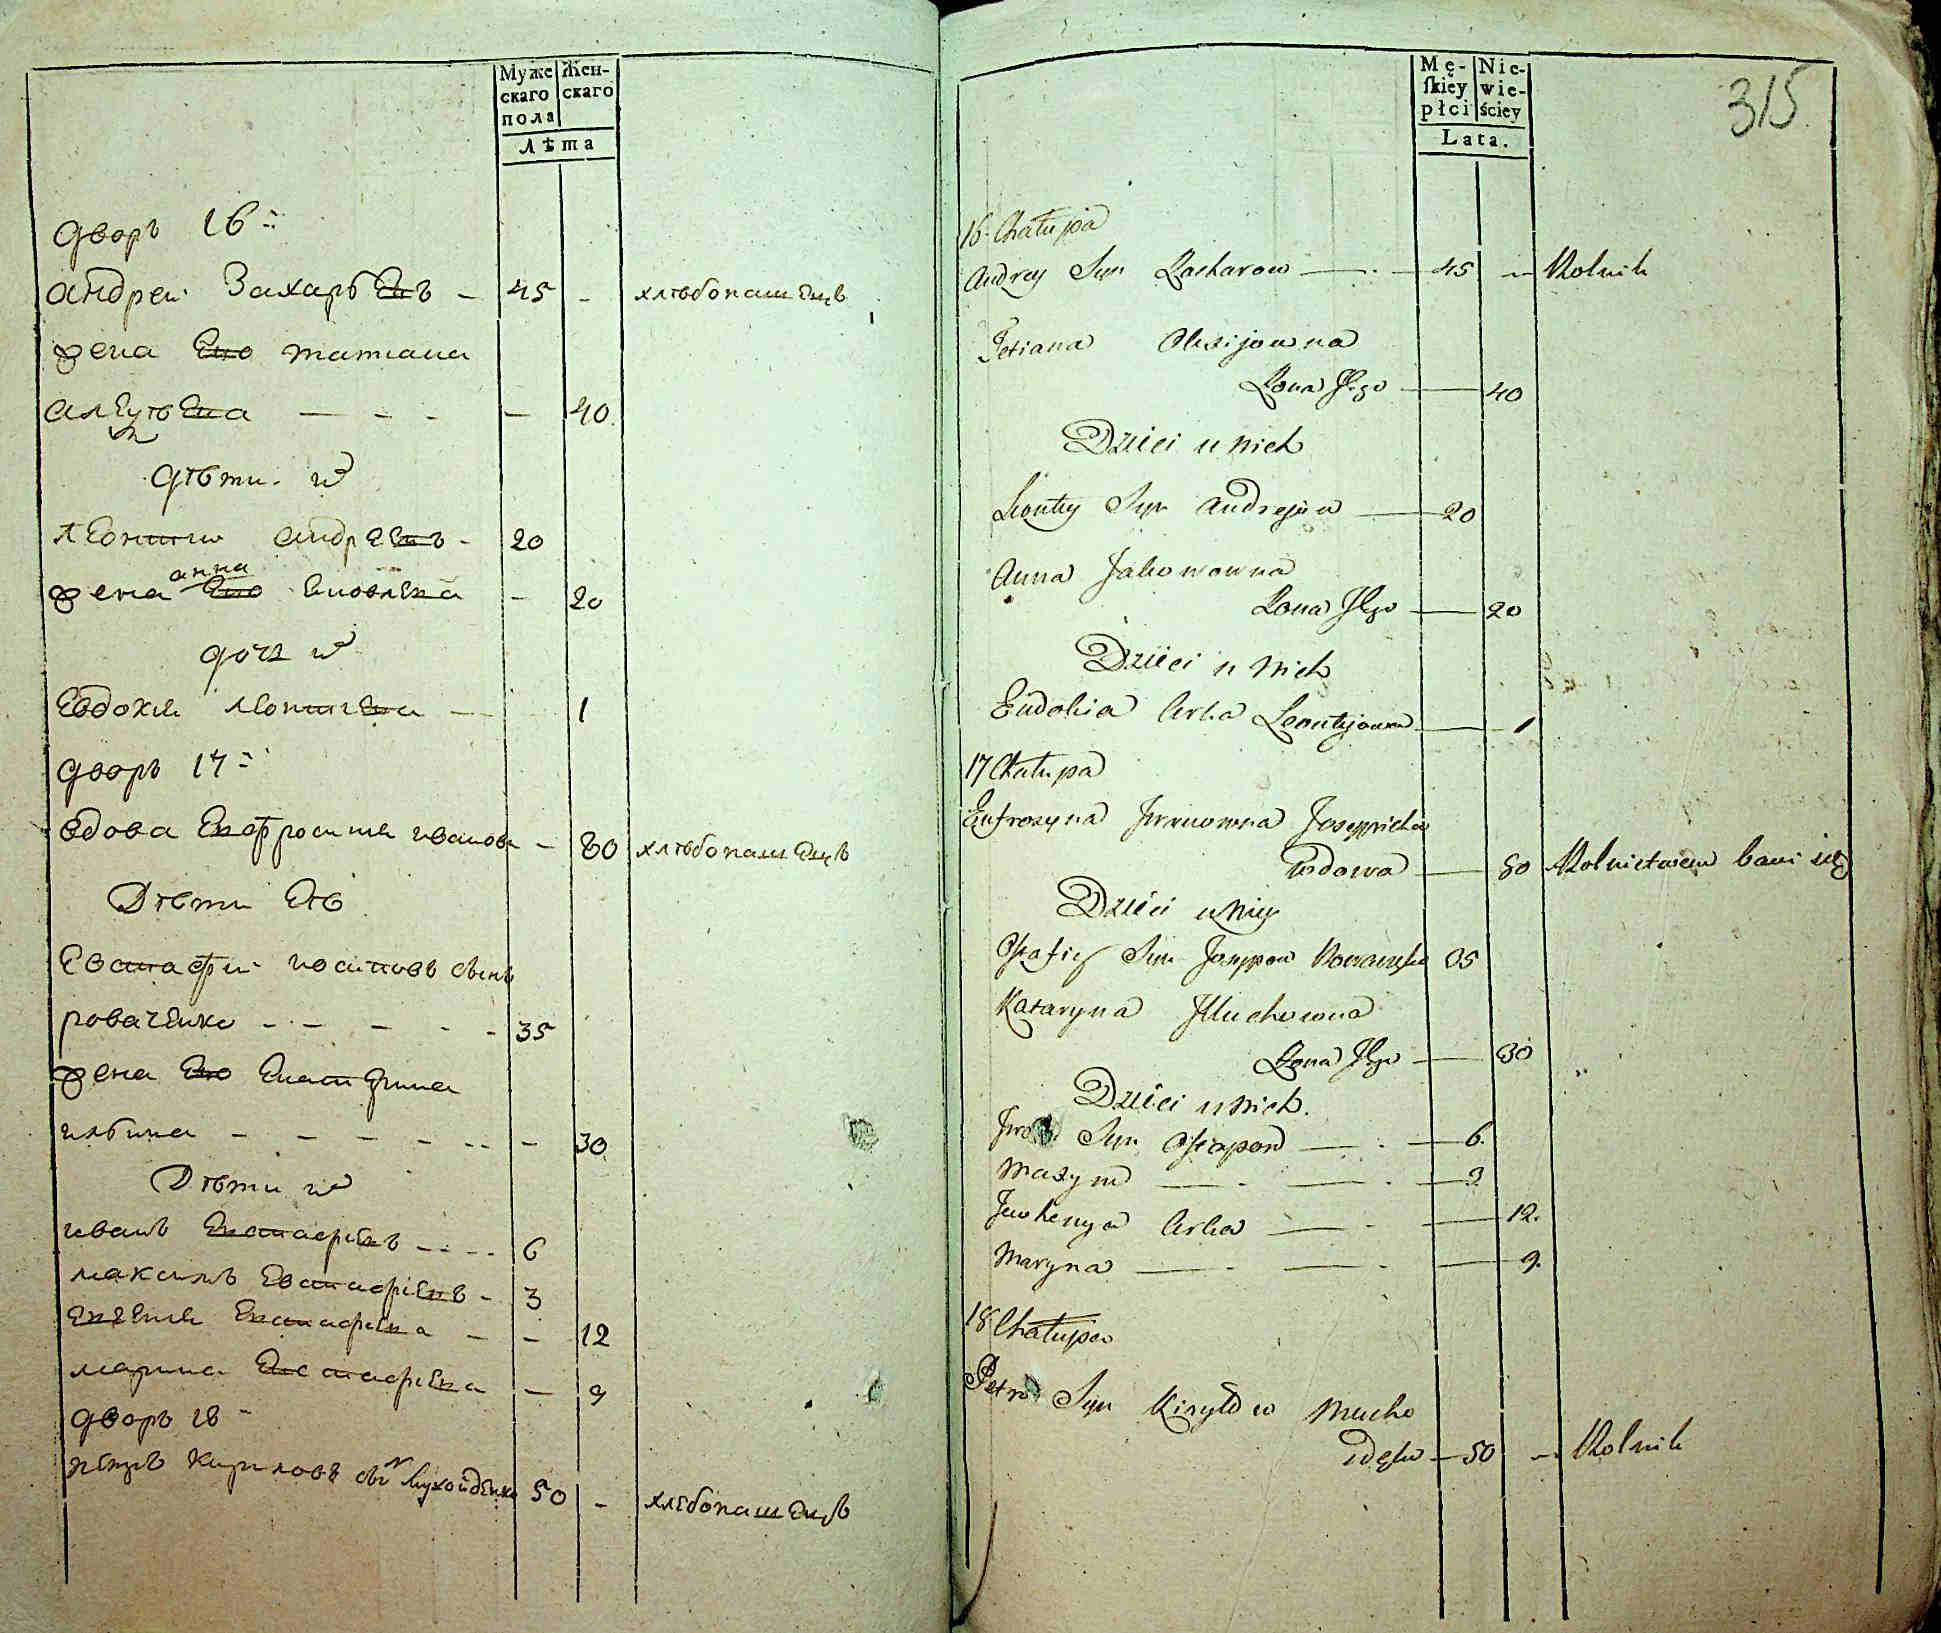 Муже
скаго
пола
Жен-
скаго
лѣта
дворъ 16й
андрей Захарьевъ - 45 - хлѣбопашецъ
жена Ево татиана
алексѣева - - - - - 40
дѣти ихъ
леонтий андреевъ - 20
анна
жена Ево яковлева - 20
дочь ихъ
Евдокия леонтиева - 1
дворъ 17й
вдова Евфросиния иванова - 80 хлѣбопашецъ
Дѣти Еѣ
Евстафий иосиповъ сынъ
коваченко - - - - - 35
жена Ево Екатерина
ильина - - - - - - 30
Дѣти ихъ
иванъ Евстафиевъ - - - - 6
максимъ Евстафиевъ - 3
Евгения Евстафиева - - 12
марина Евстафиева - 9
дворъ 18
петръ кириловъ сынъ Мухойденко 50 - хлебопашецъ
Mę-
ſkiey
płci
Nie-
wie-
ściey
Lata.
315
16. Chałupa
Andrey Syn Zacharow 45 - Rolnik
Tetiana Olexijowna
Zona Jego 40
Dzieci u nich
Leonty Syn Andrejow 20
Anna Jakowowna
Zona Jego 20
Dzieci u nich
Eudokia Corka Leontyjowna 1
17 Chałupa
Eufrozyna Jwanowna Josyppicha
Wdowa 80 Rolnictwem bawi się
Dzieci u niey
Ostafiey Syn Josyppow 35
Kataryna Jlluchowna
Zona Jego 30
Dzieci u nich.
Syn Ostapow 6.
Maxym 3
Jewhenya Corka 12.
Maryna 9.
18 Chałupa
Petro Syn Kiryłow Mucho
50 - Rolnik